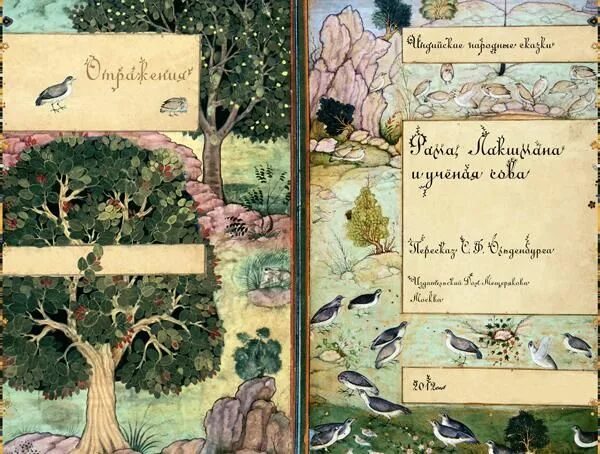 Отражения
Индийские народные сказки
Рама, Лакшмана
и учёная сова
Пересказ С. Ф. Ольденбурга
Издательский Дом Мещерякова
Москва
2012